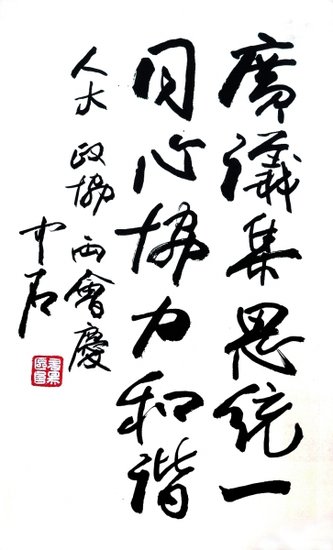 廣議集思統一
同心協力和諧
人大 政協 两會慶
中石